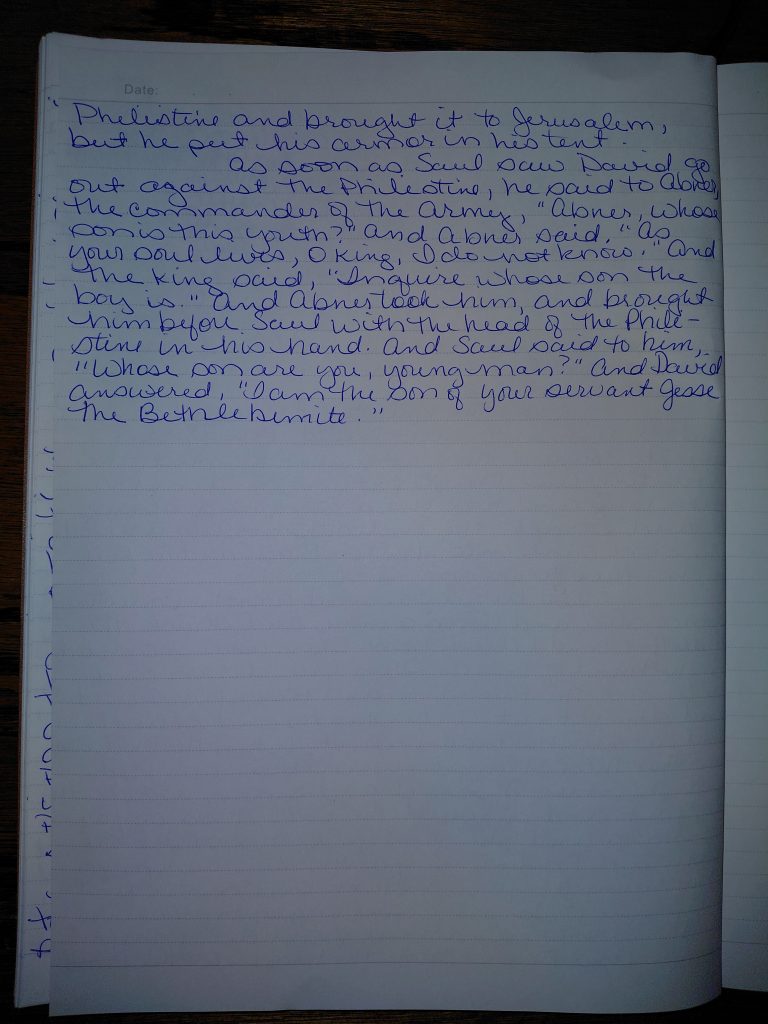 Date:
Philistine and brought it to Jerusalem,
but he put his armor in his tent.
As soon as Saul saw David go
out against the Philistine, he said to Abner,
the commander of the army, "Abner, whose
son is this youth?" And Abner said, "As
your soul lives, O king, I do not know." And
the king said, "Inquire whose son the
boy is." And Abner took him, and brought
him before Saul with the head of the Phili-
stine in his hand. And Saul said to him,
"Whose son are you, young man?" And David
answered, "I am the son of your servant Jesse
the Bethlehemite."